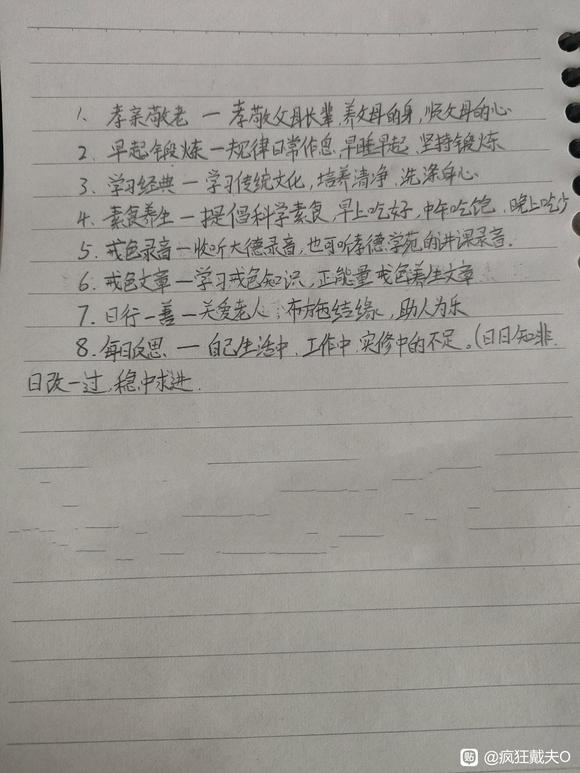 1、孝亲敬老 — 孝敬父母长辈,养父母的身,顺父母的心
2、早起锻炼 — 规律日常作息,早睡早起、坚持锻炼
3、学习经典 — 学习传统文化,培养清净、洗涤身心.
4、素食养生 — 提倡科学素食,早上吃好,中午吃饱、晚上吃少
5、戒色录音 — 收听大德录音,也可听孝德学苑的讲课录音.
6、戒色文章 — 学习戒色知识,正能量戒色养生文章
7、日行一善 — 关爱老人;布施结缘,助人为乐
8、每日反思 — 自己生活中、工作中、实修中的不足。(日日知非,
日改一过,稳中求进.
贴 @疯狂戴夫O